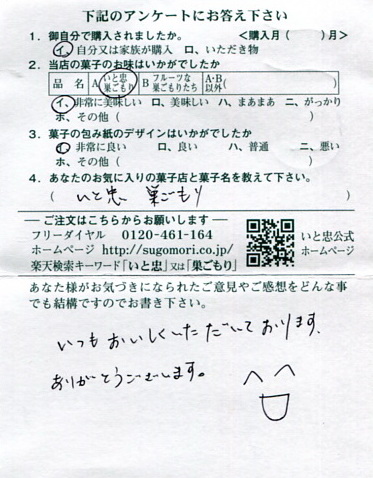 下記のアンケートにお答え下さい
1. 御自分で購入されましたか。 <購入月( )月>
イ、自分又は家族が購入 ロ、いただき物
2. 当店の菓子のお味はいかがでしたか
品 名 A いと忠 巣ごもり B フルーツな 巣ごもりたち A・B 以外 ( )
イ、非常に美味しい ロ、美味しい ハ、まあまあ ニ、がっかり
ホ、その他 ( )
3. 菓子の包み紙のデザインはいかがでしたか
イ、非常に良い ロ、良い ハ、普通 ニ、悪い
ホ、その他 ( )
4. あなたのお気に入りの菓子店と菓子名を教えて下さい。
( いと忠 巣ごもり )
ご注文はこちらからお願いします
フリーダイヤル 0120-461-164
ホームページ http://sugomori.co.jp/
楽天検索キーワード「いと忠」又は「巣ごもり」
いと忠公式
ホームページ
あなた様がお気づきになられたご意見やご感想をどんな事
でも結構ですのでお書き下さい。
いつもおいしくいただいております。
ありがとうございます。